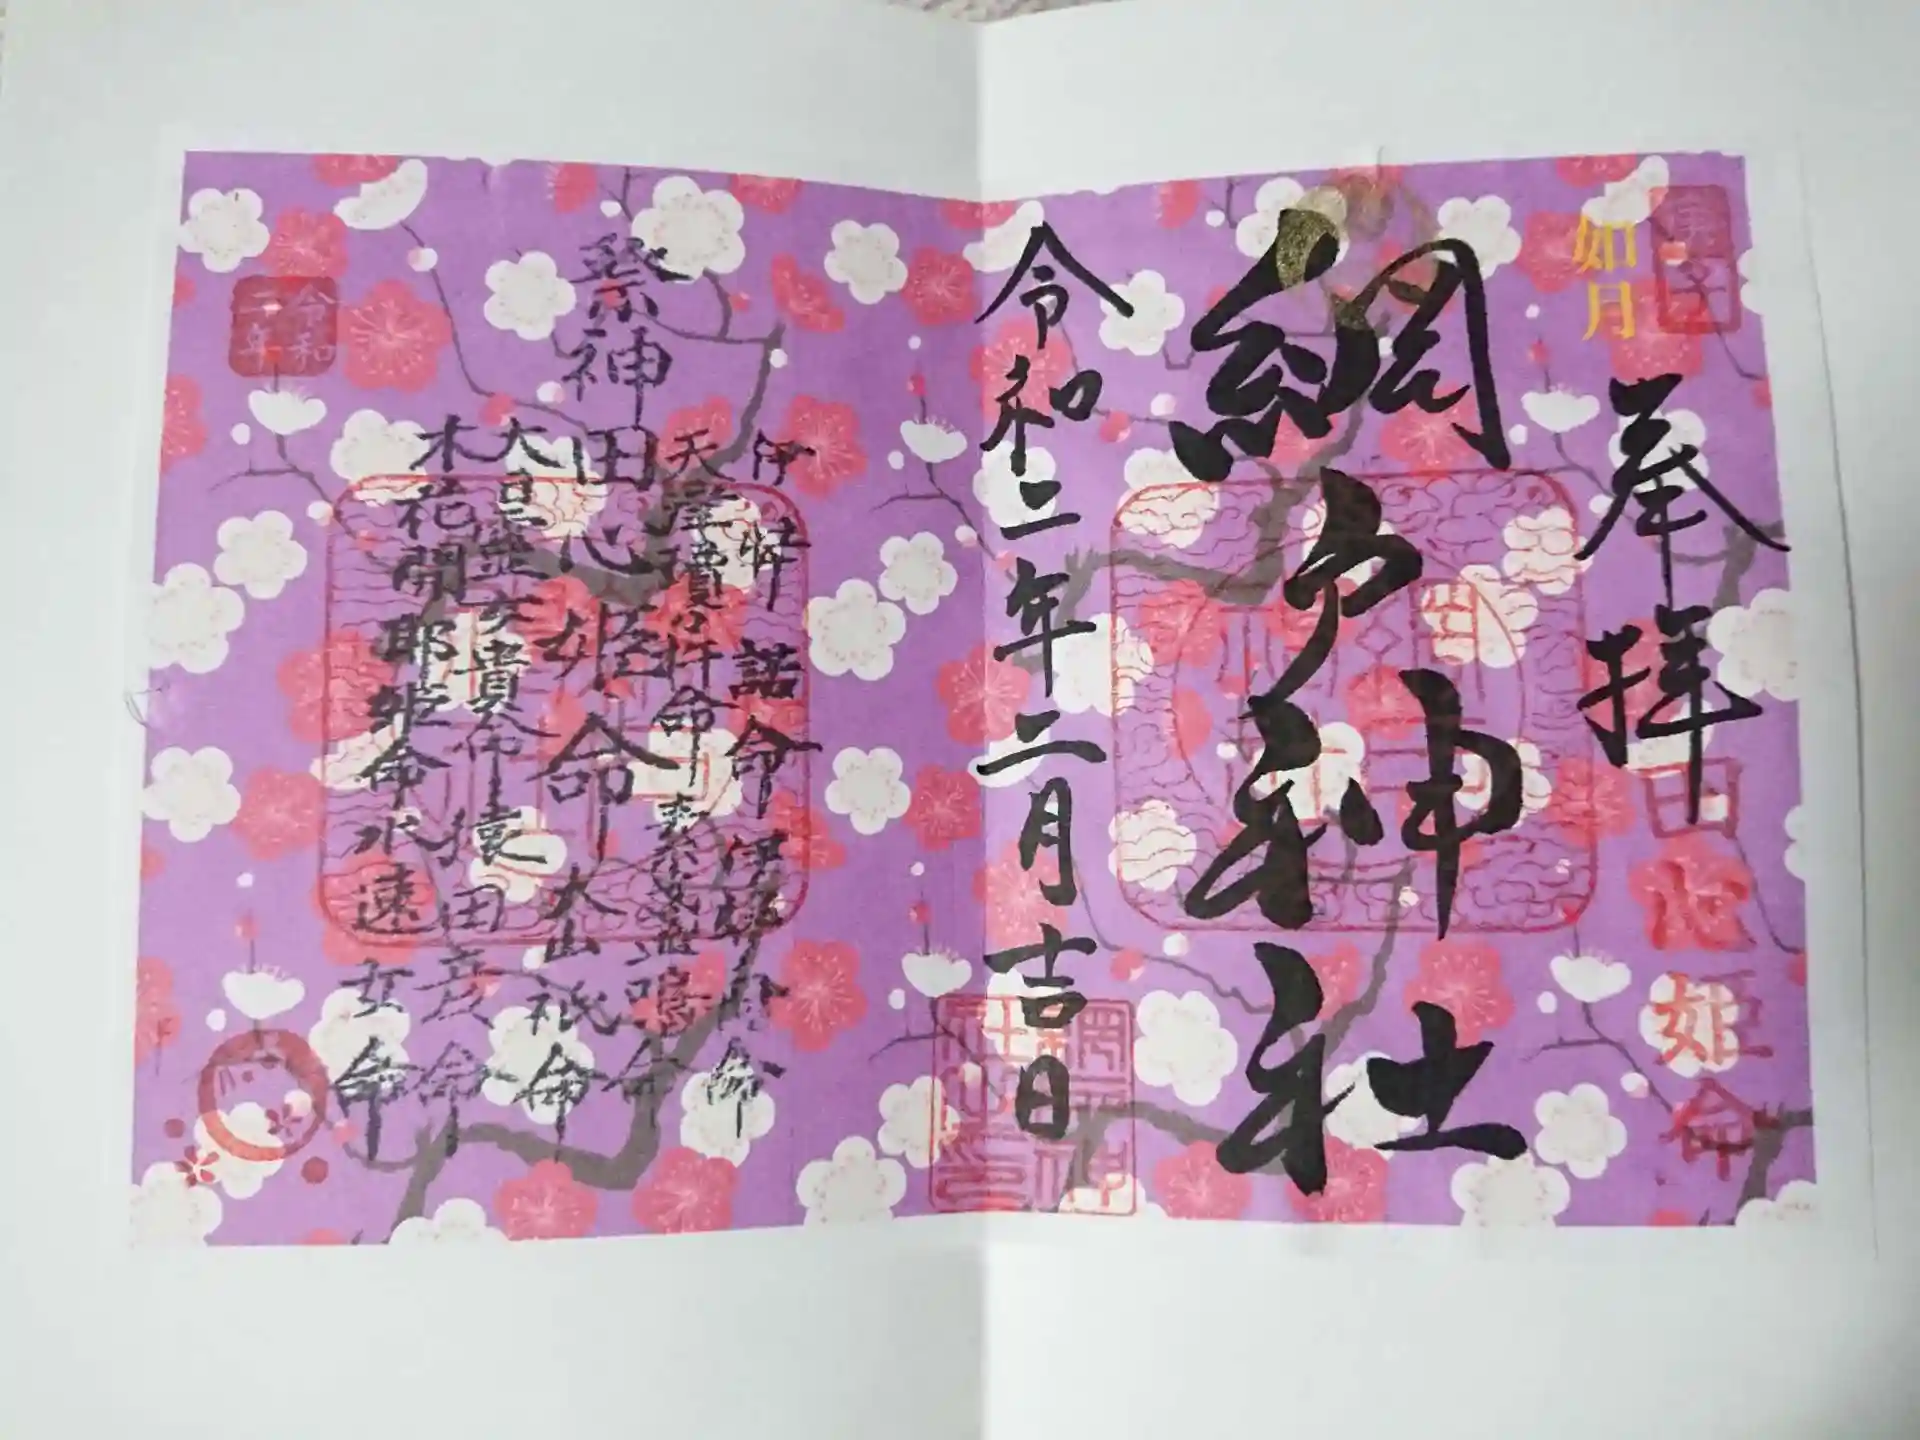 如月
奉拝
田心姫命
網戸神社
令和二年二月吉日
祭神
伊弉諾命 伊弉冉命
天津瓊瓊杵命 素盞嗚命
田心姫命 大山祇命
大日孁女貴命 猿田彦命
木花開耶姫命 水速女命
令和
二年